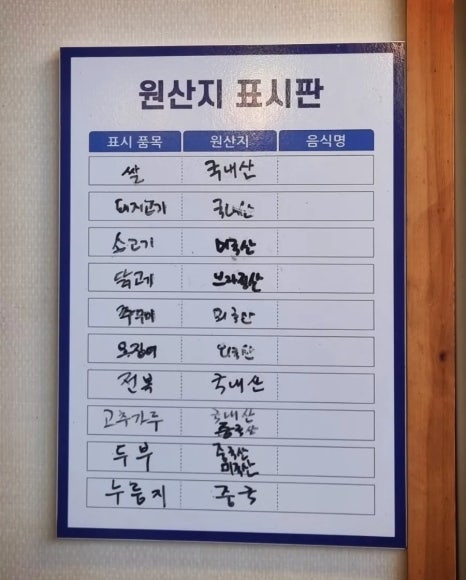 원산지 표시판
표시 품목 원산지 음식명
쌀 국내산
돼지고기 국내산
소고기 미국산
닭고기 브라질산
쭈꾸미
오징어
전복 국내산
고추가루 국내산
중국산
두부 중국산
미국산
누룽지 중국